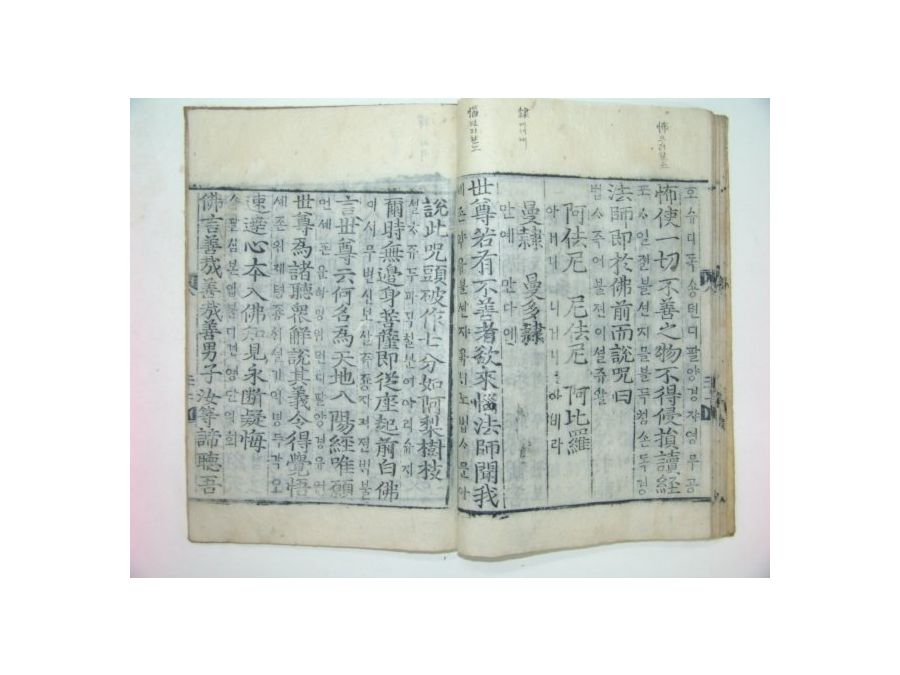 호슈디독송텬디팔양경자영무공
怖使一切不善之物不得侵損讀經
포사일졀불션지믈불득침손독경
法師即於佛前而說呪曰
법사즉어불젼이셜쥬왈
阿佉尼 尼佉尼 阿比羅
아거니 니거니 아비라
曼隷 曼多隷
만예 만다예
世尊若有不善者欲來惱法師聞我
세존약유불션쟈욕닉노법사문아
說此呪頭破作七分如阿梨樹枝
셜차쥬두파작칠분여아리슈지
爾時無邊身菩薩即從座起前白佛
이시무변신보살즉죵좌긔젼빅불
言世尊云何名為天地八陽經唯願
언셰존운하명위텬디팔양경유원
世尊為諸聽衆解說其義令得覺悟
셰존위졔텽즁해셜기의영득각오
速達心本入佛知見永斷疑悔
속달심본입불디견영단의회
佛言善哉善哉善男子汝等諦聽吾